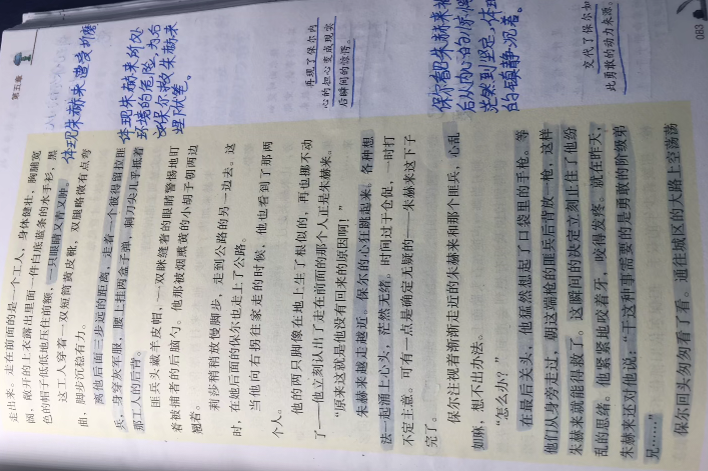 第五章
走出来。走在前面的是一个工人，身体健壮，胸脯宽
阔，敞开的上衣露出里面一件白底蓝条的水手衫，黑
色的帽子低低地压住的额，一只眼睛又青又肿。
这工人穿着一双短筒黄皮靴，双腿略微有点弯
曲，脚步沉稳有力。
离他后面三步远的距离，走着一个彼得留拉匪
兵，身穿灰军服，腰上挂两盒子弹，刺刀尖几乎抵着
那工人的后背。
匪兵头戴羊皮帽，一双眯缝着的眼睛警惕地盯
着被捕者的后脑勺。他那被烟熏黄的小胡子朝两边
翘着。
莉莎稍稍放慢脚步，走到公路的另一边去。这
时，在她后面的保尔也走上了公路。
当他向右拐往家走的时候，他也看到了那两
个人。
他的两只脚像在地上生了根似的，再也挪不动
了——他立刻认出了走在前面的那个人正是朱赫来。
“原来这就是他没有回来的原因啊！”
朱赫来越走越近。保尔的心狂跳起来。各种想
法一起涌上心头，茫然无绪。时间过于仓促，一时打
不定主意。可有一点是确定无疑的——朱赫来这下子
完了。
保尔注视着渐渐走近的朱赫来和那个匪兵，心乱
如麻，想不出办法。
“怎么办？”
在最后关头，他猛然想起了口袋里的手枪。等
他们从身旁走过，朝这端枪的匪兵后背放一枪，这样
朱赫来就能得救了。这瞬间的决定立刻止住了他纷
乱的思绪。他紧紧地咬着牙，咬得发疼。就在昨天，
朱赫来还对他说：“干这种事需要的是勇敢的阶级弟
兄……”
保尔回头匆匆看了看。通往城区的大路上空荡荡
体现朱赫来遭受折磨
体现朱赫来所处
环境的危险，为后
保尔救朱赫来
埋下伏笔。
再现了保尔内
心的担心变成现实
后瞬间的惊愕。
保尔看到朱赫来被
后从内心的
茫然到坚定，体现
的镇静沉着。
交代了保尔如
此勇敢的动力来源。
083